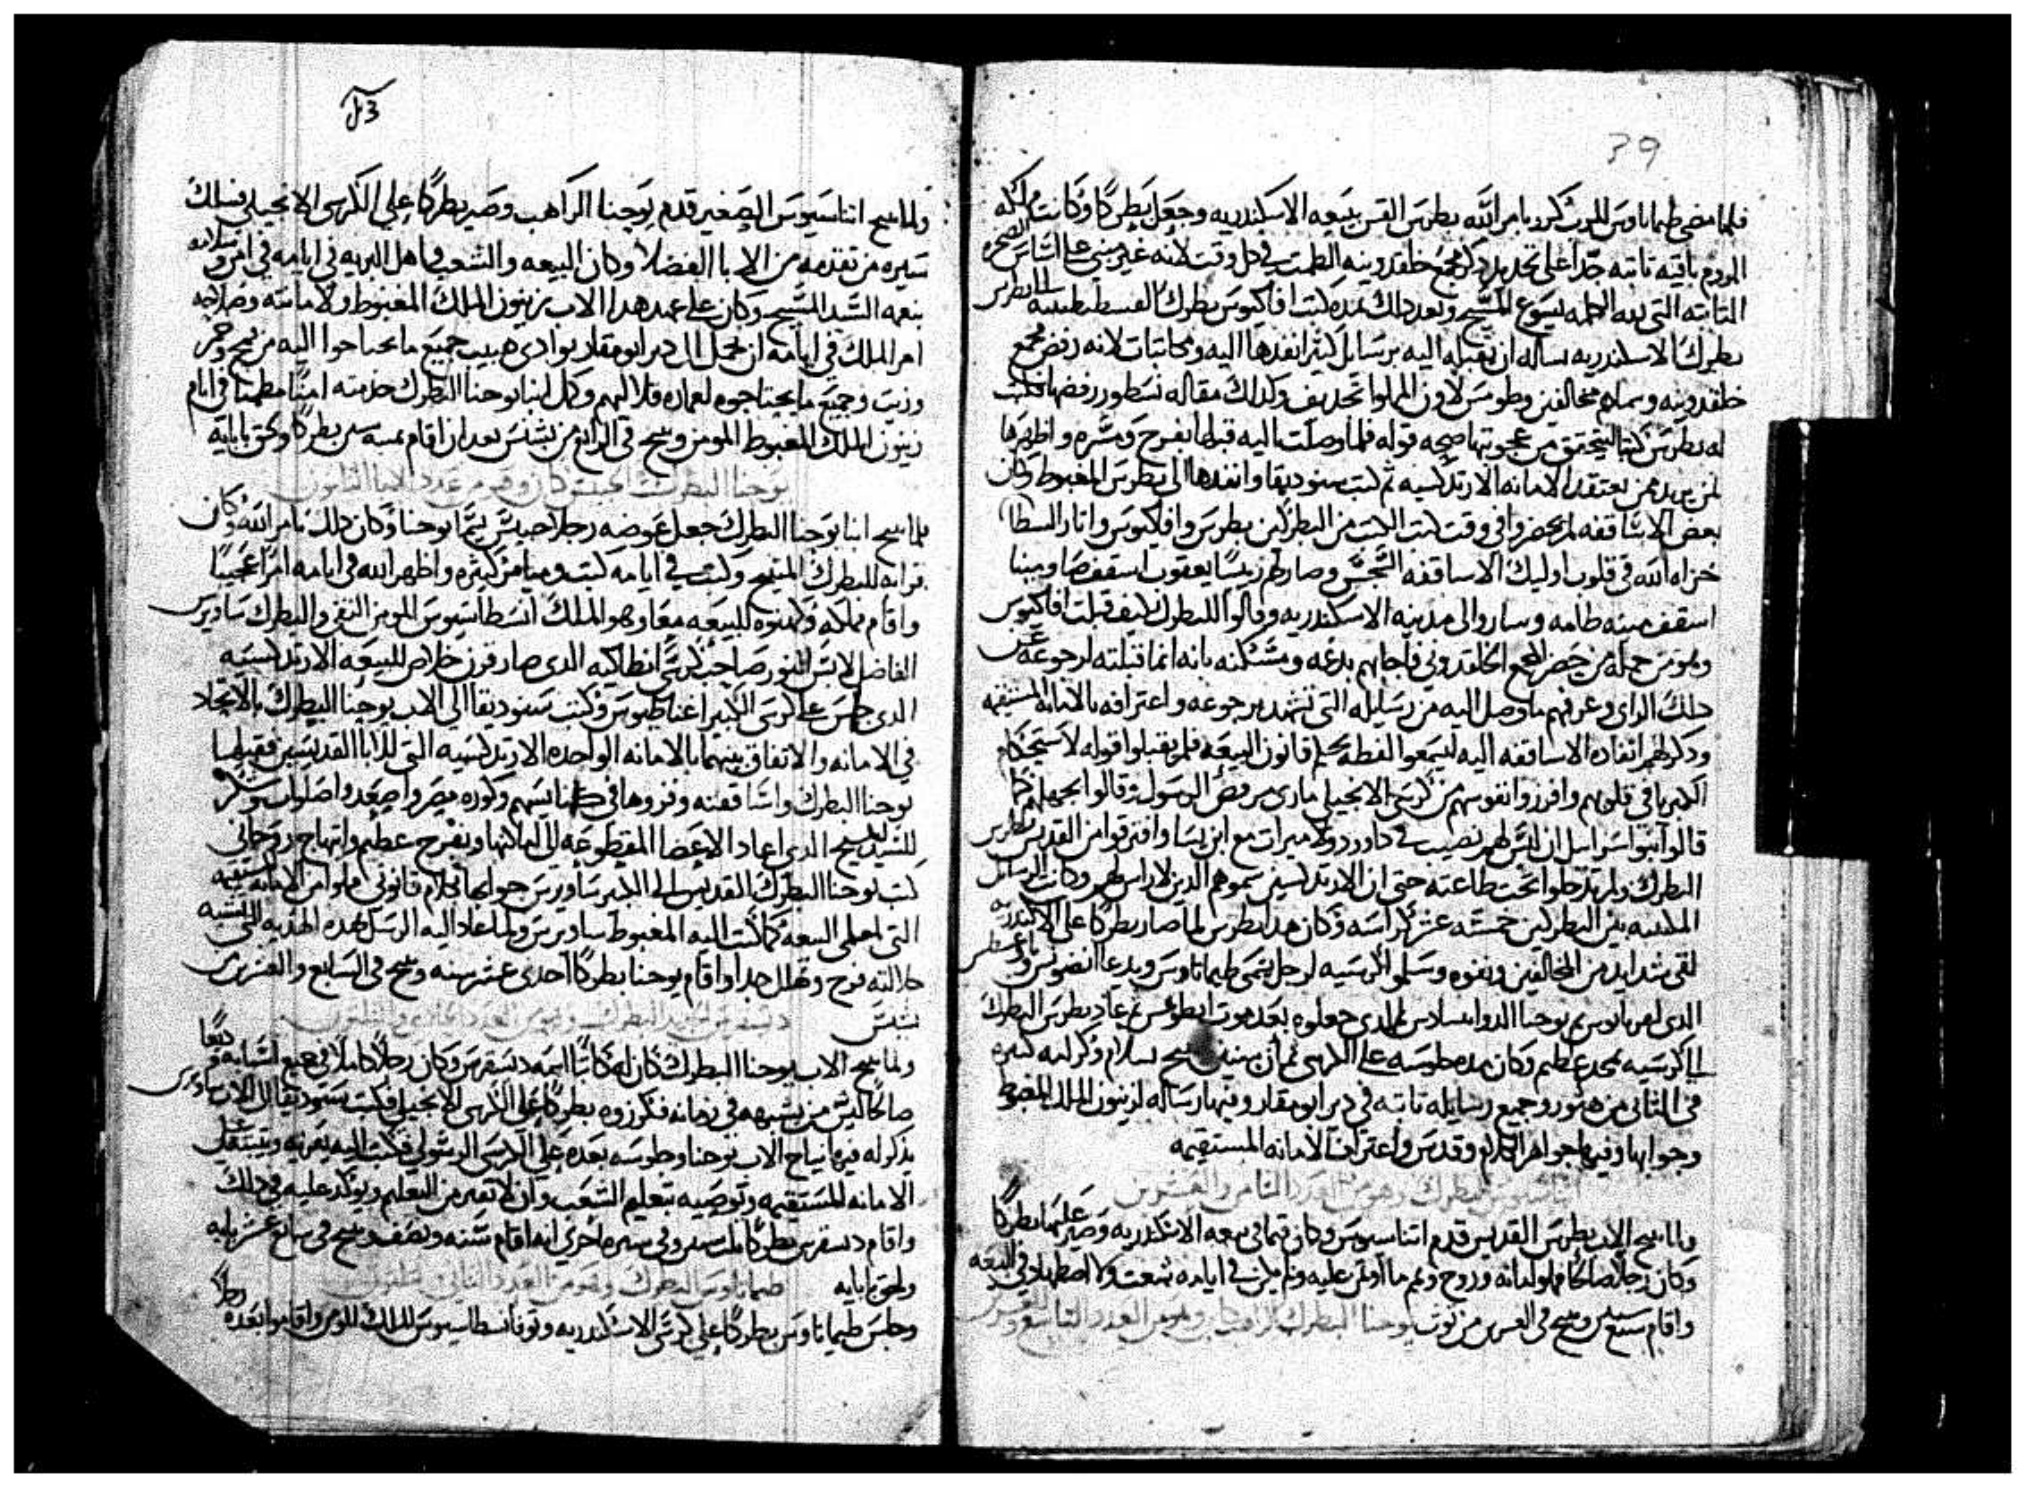 39
فلما مضى طيماتاوس المدد كرر بامر الله بطرس القس ببيعه الاسكندريه وجعل بطركا وكانت مملكه
الروم باقيه تابته جدا على تجديد ذكر مجمع خلقدونيه الطمث في كل وقت لانه غير مبني على الساس الصخره
التابته التي يسوع المسيح وبعد دلك كتب اقاكيوس بطرك القسطنطينيه الى بطرس
بطرك الاسكندريه يساله ان يقبله اليه برسايل كثير انفدها اليه ومكاتبات لانه رفض مجمع
خلقدونيه وسماهم مخالفين وطومس لاون المملوا تجديف وكدلك مقاله نسطور رفضها فكتب
له بطرس كتبا ليتحقق من صحه قوله فلما وصلت اليه قبلها بفرح ومسره واظهرها
لمن يعتقد الامانه الارتدكسيه ثم كتب سنوديقا وانفدها الى بطرس المغبوط وكان
بعض الاساقفه لم يحضروا في وقت كتب الكتب من البطركين بطرس واقاكيوس واتار الشيطان
خزاه الله في قلوب اوليك الاساقفه التجسس وصار لهم رييسا يعقوب اسقف صا ومينا
اسقف مينه طامه وساروا الى مدينه الاسكندريه وقالوا للبطرك كيف قبلت اقاكيوس
وهو من جمله من حضر المجمع الخلقدوني فاجابهم بدعه ومسكنه بانه انما قبلته لرجوعه عن
دلك الراي وعرفهم ما وصل اليه من رسايله التي تشهد برجوعه واعترافه بالامانه المستقيمه
ودكر لهم انفاده الاساقفه اليه ليسمعوا لفظه بحكم قانون البيعه فلم يقبلوا قوله لاستحكام
الكبريا في قلوبهم وافرزوا نفوسهم من كرسي الانجيلي ماري مرقص الرسول وقالوا بجهلهم كما
قالوا بنوا اسرايل ان ليس لهم نصيب في داوود ولا ميرات مع ابن يسا وافترقوا من القديس بطرس
البطرك ولم يدخلوا تحت طاعته حتى ان الارتدكسيين سموهم الدين لا راس لهم وكانت الرسايل
المكتبه بين البطركين خمسه عشر كراسه وكان هدا بطرس لما صار بطركا على الاسكندريه
لقي شدايد من المخالفين ونفوه وسلموا الكرسيه لرجل يسمى طيماتاوس
يوحنا الدي جعلوه بعد موت ثم عاد بطرس البطرك
الى كرسيه بمجد عظيم وكان مده جلوسه على الكرسي تمان سنين وتنيح بسلام وكرامه كبيره
في التاني من هتور وجميع رسايله تابته في دير ابو مقار وفيها رساله لزينون الملك المغبوط
وجوابها وفيها جواهر الكلام وقدس واعتراف الامانه المستقيمه
اتناسيوس البطرك وهو من العدد التامن والعشرين
ولما تنيح الاب بطرس القديس قدم اتناسيوس وكان قيما في بيعه الاسكندريه وصير عليها بطركا
وكان رجلا صالحا مملوا امانه وروح وتمم ما اوتمن عليه ولم يكن في ايامه شعت ولا اضطهاد في البيعه
واقام سبع سنين وتنيح في العشرين من توت يوحنا البطرك الراهب وهو من العدد التاسع والعشرين
ولما تنيح اتناسيوس الصغير قدم يوحنا الراهب وصير بطركا على الكرسي الانجيلي فسلك
سيره من تقدمه من الابا الفضلا وكان البيعه والشعب واهل البريه في ايامه في امن وسلامه
بنعمه السيد المسيح وكان على عهد هدا الاب زينون الملك المغبوط ولامانته وصلاحه
امر الملك في ايامه ان يحمل الى دير ابو مقار بوادي هبيب جميع ما يحتاجوا اليه من قمح وخمر
وزيت وجميع ما يحتاجوه لعماره قلاليهم وكمل ابينا يوحنا البطرك خدمته امنا مطمنا في ايام
زينون الملك المغبوط المومن وتنيح في الرابع من بشنس بعد ان اقام تمنيه سنين بطركا ولحق بابايه
يوحنا البطرك الحبيس كان وهو من عدد الابا التلتون
فلما تنيح انبا يوحنا البطرك جعل عوضه رجلا حبيس يسمى يوحنا وكان دلك بامر الله وكان
قرابه للبطرك المتنيح وكتب في ايامه كتب وميامر كثيره واظهر الله في ايامه امرا عجيبا
واقام مملكه وكهنوه للبيعه معا وهو الملك انسطاسيوس المومن التقي والبطرك ساويرس
الفاضل لابس النور صاحب كرسي انطاكيه الدي صار قرن خلاص للبيعه الارتدكسيه
الدي جلس على كرسي الكبير اغناطيوس وكتب سنوديقا الى الاب يوحنا البطرك بالاتحاد
في الامانه والاتفاق بينهما بالامانه الواحده الارتدكسيه التي للابا القديسين فقبلها
يوحنا البطرك واساقفته وقروها في كنايسهم وكوره مصر واصعدوا صلوات وشكر
للسيد المسيح الدي اعاد الاعضا المقطوعه الى اماكنها وبفرح عظيم وابتهاج روحاني
كتب يوحنا البطرك القديس الى الكبير ساويرس جوابها بكلام قانوني مملوا من الامانه المستقيمه
التي لمعلمي البيعه كما كتب اليه المغبوط ساويرس ولما عاد اليه الرسل بهده الهديه النفيسه التي
فرح وتهلل جدا واقام يوحنا بطركا احدى عشر سنه وتنيح في السابع والعشرين من
بشنس ديسقرس الجديد البطرك وهو من العدد الحادي والتلتون
ولما تنيح الاب يوحنا البطرك كان له كاتبا اسمه ديسقرس وكان رجلا كاملا في جميع اسبابه وديعا
صالحا ليس من يشبهه في زمانه فكرزوه بطركا على الكرسي الانجيلي فكتب سنوديقا الى الاب ساويرس
يدكر له فيها نياح الاب يوحنا وجلوسه بعده على الكرسي الرسولي فكتب اليه يعزيه ويتبته على
الامانه المستقيمه وتوصيه بتعليم الشعب وان لا يفتر من التعليم ويوكد عليه في دلك
واقام ديسقرس بطركا تلت سنين وفي سيره اخرى انه اقام سنه ونصف وتنيح في سابع عشر بابه
ولحق بابايه طيماتاوس البطرك وهو من العدد التاني والتلتون
وجلس طيماتاوس بطركا على كرسي الاسكندريه وتوفا انسطاسيوس الملك المومن واقاموا بعده رجلا